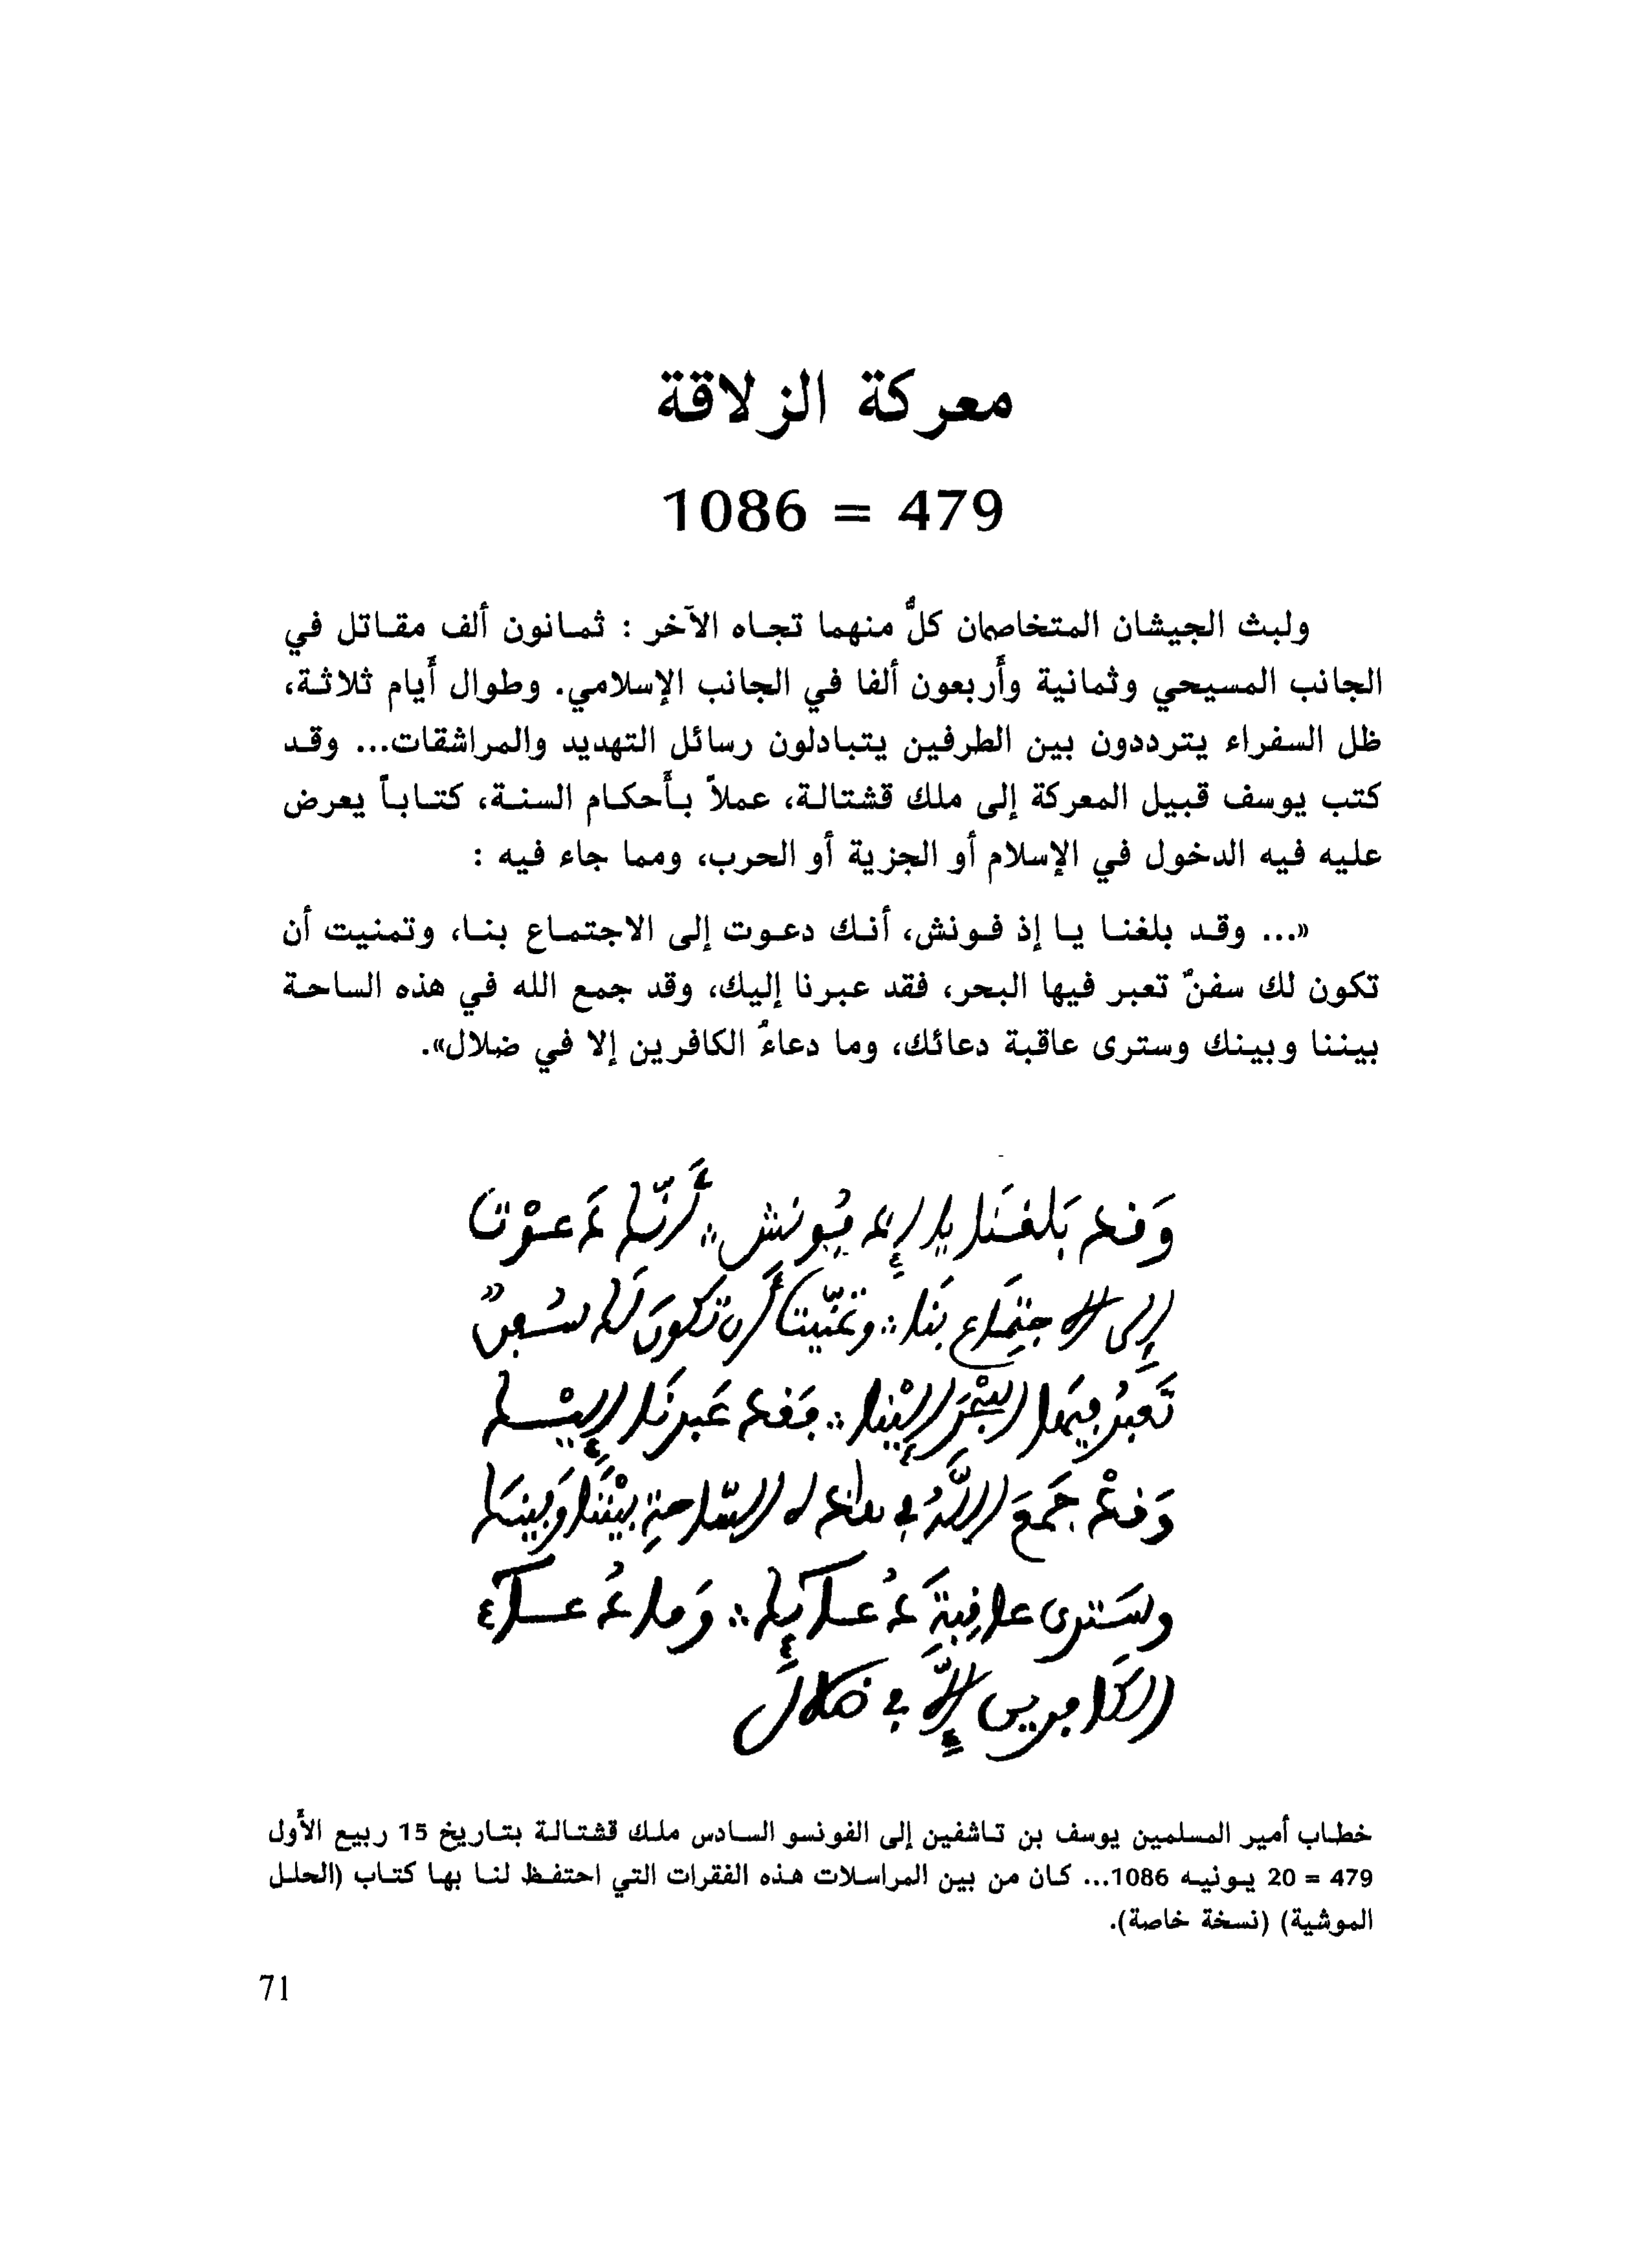 معركة الزلاقة
1086 = 479
ولبث الجيشان المتخاصمان كلٌّ منهما تجاه الآخر : ثمانون ألف مقاتل في
الجانب المسيحي وثمانية وأَربعون ألفا في الجانب الإسلامي. وطوال أَيام ثلاثة،
ظل السفراء يترددون بين الطرفين يتبادلون رسائل التهديد والمراشقات... وقد
كتب يوسف قبيل المعركة إلى ملك قشتالة، عملاً بأَحكام السنة، كتاباً يعرض
عليه فيه الدخول في الإسلام أو الجزية أو الحرب، ومما جاء فيه :
«... وقد بلغنا يا إذ فونش، أنك دعوت إلى الاجتماع بنا، وتمنيت أن
تكون لك سفنٌ تعبر فيها البحر، فقد عبرنا إليك، وقد جمع الله في هذه الساحة
بيننا وبينك وسترى عاقبة دعائك، وما دعاءُ الكافرين إلا في ضلال».
وَقد بَلغَنَا يا إِذ فُونش أَنّك دَعوْت
إلى الاجتِمَاع بنَا وتمَنّيت أَن تكونَ لَك سُفنٌ
تَعبُر فيهَا البحْرَ إليْنا فَقد عَبرنَا إليْك
وَقدْ جَمعَ اللَّهُ في هاذه السّاحةِ بيْننَا وَبينَك
وسَترى عاقِبةَ دُعائِك وَما دُعاء
الكَافرين إلاَّ في ضلاَل
خطاب أمير المسلمين يوسف بن تاشفين إلى الفونسو السادس ملك قشتالة بتاريخ 15 ربيع الأَول
479 = 20 يونيه 1086... كان من بين المراسلات هذه الفقرات التي احتفظ لنا بها كتاب (الحلل
الموشية) (نسخة خاصة).
71